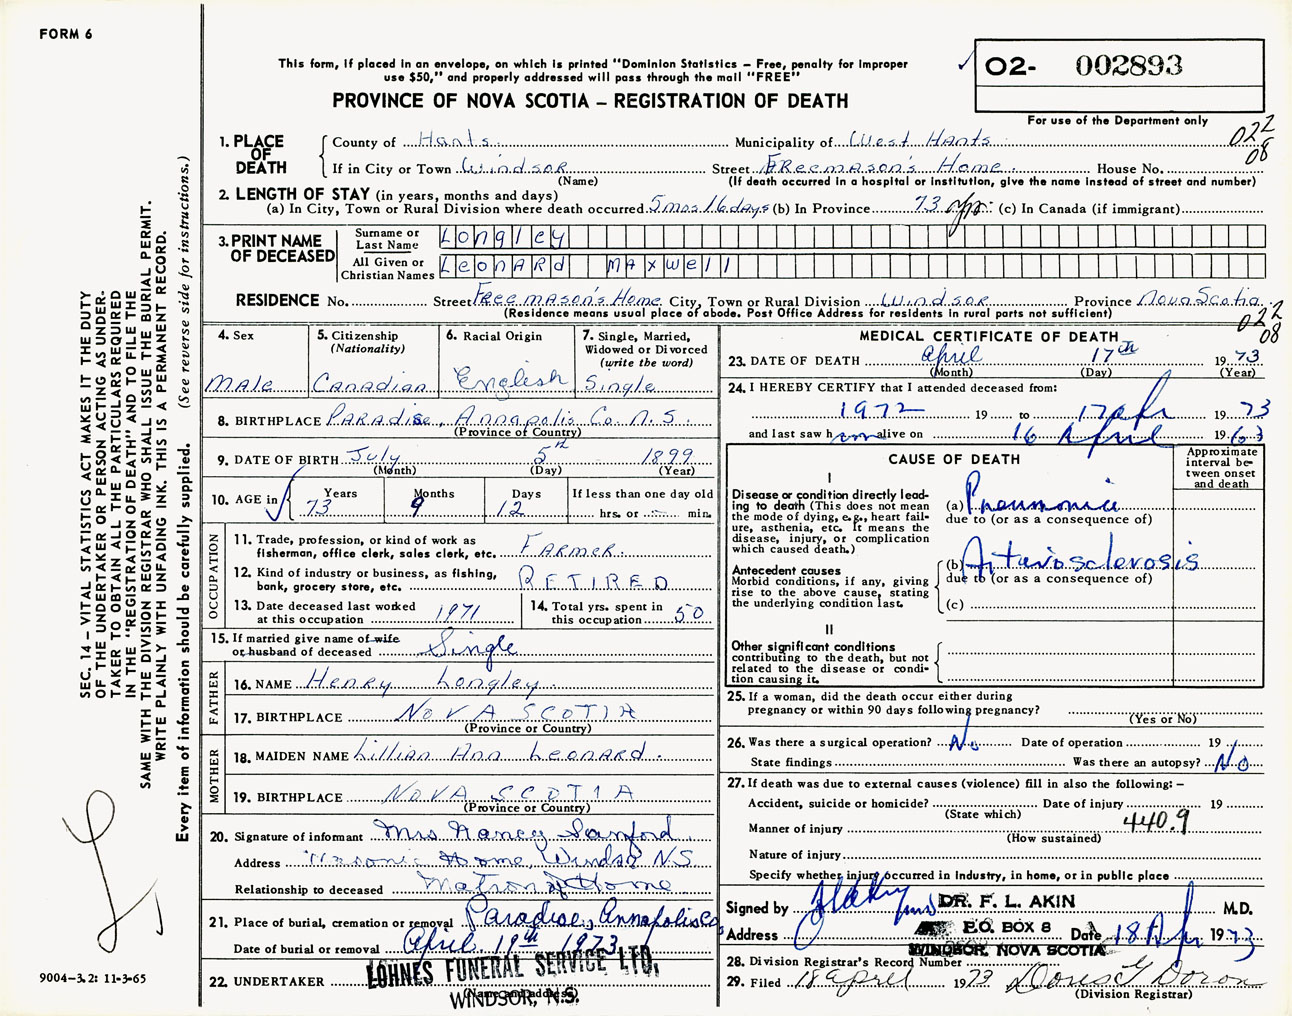 FORM 6
This form, if placed in an envelope, on which is printed "Dominion Statistics – Free, penalty for improper
use $50," and properly addressed will pass through the mail "FREE"
PROVINCE OF NOVA SCOTIA – REGISTRATION OF DEATH
02- 002893
For use of the Department only
022
08
1. PLACE OF DEATH
County of Hants Municipality of West Hants
If in City or Town Windsor Street Freemason's Home House No.
(Name) (If death occurred in a hospital or institution, give the name instead of street and number)
2. LENGTH OF STAY (in years, months and days)
(a) In City, Town or Rural Division where death occurred 5mos 16days (b) In Province 73 yrs. (c) In Canada (if immigrant)
3. PRINT NAME OF DECEASED
Surname or Last Name Longley
All Given or Christian Names Leonard Maxwell
RESIDENCE No. Street Freemason's Home City, Town or Rural Division Windsor Province Nova Scotia
(Residence means usual place of abode. Post Office Address for residents in rural parts not sufficient)
022
08
4. Sex
Male
5. Citizenship
(Nationality)
Canadian
6. Racial Origin
English
7. Single, Married,
Widowed or Divorced
(write the word)
Single
8. BIRTHPLACE Paradise, Annapolis Co. N.S.
(Province of Country)
9. DATE OF BIRTH July 5th 1899
(Month) (Day) (Year)
10. AGE in
Years Months Days If less than one day old
73 9 12 hrs. or min.
OCCUPATION
11. Trade, profession, or kind of work as
fisherman, office clerk, sales clerk, etc. Farmer.
12. Kind of industry or business, as fishing,
bank, grocery store, etc. RETIRED
13. Date deceased last worked
at this occupation 1971
14. Total yrs. spent in
this occupation 50
15. If married give name of wife
or husband of deceased Single
FATHER
16. NAME Henry Longley
17. BIRTHPLACE NOVA SCOTIA
(Province or Country)
MOTHER
18. MAIDEN NAME Lillian Ann Leonard.
19. BIRTHPLACE NOVA SCOTIA
(Province or Country)
20. Signature of informant Mrs Nancy Sanford
Address Masonic Home, Windsor N.S
Relationship to deceased Matron of Home
21. Place of burial, cremation or removal Paradise, Annapolis Co
Date of burial or removal April 19th 1973
22. UNDERTAKER LOHNES FUNERAL SERVICE LTD.
(Name and address)
WINDSOR, N.S.
MEDICAL CERTIFICATE OF DEATH
23. DATE OF DEATH April 17th 1973
(Month) (Day) (Year)
24. I HEREBY CERTIFY that I attended deceased from:
1972 19 to 17 Apr 1973
and last saw him alive on 16 April 1963
CAUSE OF DEATH
Approximate
interval be-
tween onset
and death
I
Disease or condition directly lead-
ing to death (This does not mean
the mode of dying, e.g., heart fail-
ure, asthenia, etc. It means the
disease, injury, or complication
which caused death.)
(a) Pneumonia
due to (or as a consequence of)
Antecedent causes
Morbid conditions, if any, giving
rise to the above cause, stating
the underlying condition last.
(b) Arteriosclerosis
due to (or as a consequence of)
(c)
II
Other significant conditions
contributing to the death, but not
related to the disease or condi-
tion causing it.
25. If a woman, did the death occur either during
pregnancy or within 90 days following pregnancy?
(Yes or No)
26. Was there a surgical operation? No Date of operation 19
State findings Was there an autopsy? No
27. If death was due to external causes (violence) fill in also the following: –
Accident, suicide or homicide? Date of injury 19
(State which)
Manner of injury 440.9
(How sustained)
Nature of injury
Specify whether injury occurred in Industry, in home, or in public place
Signed by DR. F. L. AKIN M.D.
Address P.O. BOX 8 Date 18 Apr 1973
WINDSOR, NOVA SCOTIA
28. Division Registrar's Record Number
29. Filed 18 April 1973
(Division Registrar)
SEC. 14 – VITAL STATISTICS ACT MAKES IT THE DUTY
OF THE UNDERTAKER OR PERSON ACTING AS UNDER-
TAKER TO OBTAIN ALL THE PARTICULARS REQUIRED
IN THE "REGISTRATION OF DEATH" AND TO FILE THE
SAME WITH THE DIVISION REGISTRAR WHO SHALL ISSUE THE BURIAL PERMIT.
WRITE PLAINLY WITH UNFADING INK. THIS IS A PERMANENT RECORD.
Every item of information should be carefully supplied. (See reverse side for instructions.)
9004–3.2: 11-3-65